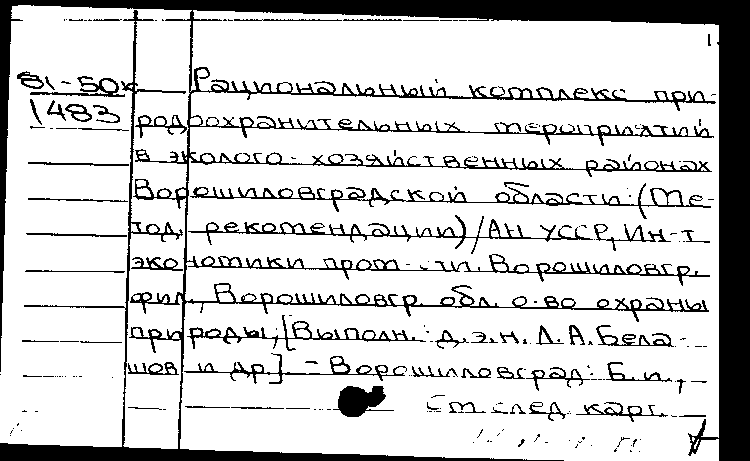 1.
81-50к Рациональный комплекс при-
1483 родоохранительных мероприятий
в эколого-хозяйственных районах
Ворошиловградской области: (Ме-
тод. рекомендации) / АН УССР, Ин-т
экономики пром-сти. Ворошиловгр.
фил., Ворошиловгр. обл. о-во охраны
природы; [Выполн.: д.э.н. Л.А. Бела-
шов и др.]. - Ворошиловград: Б.и.,
См след. карт.